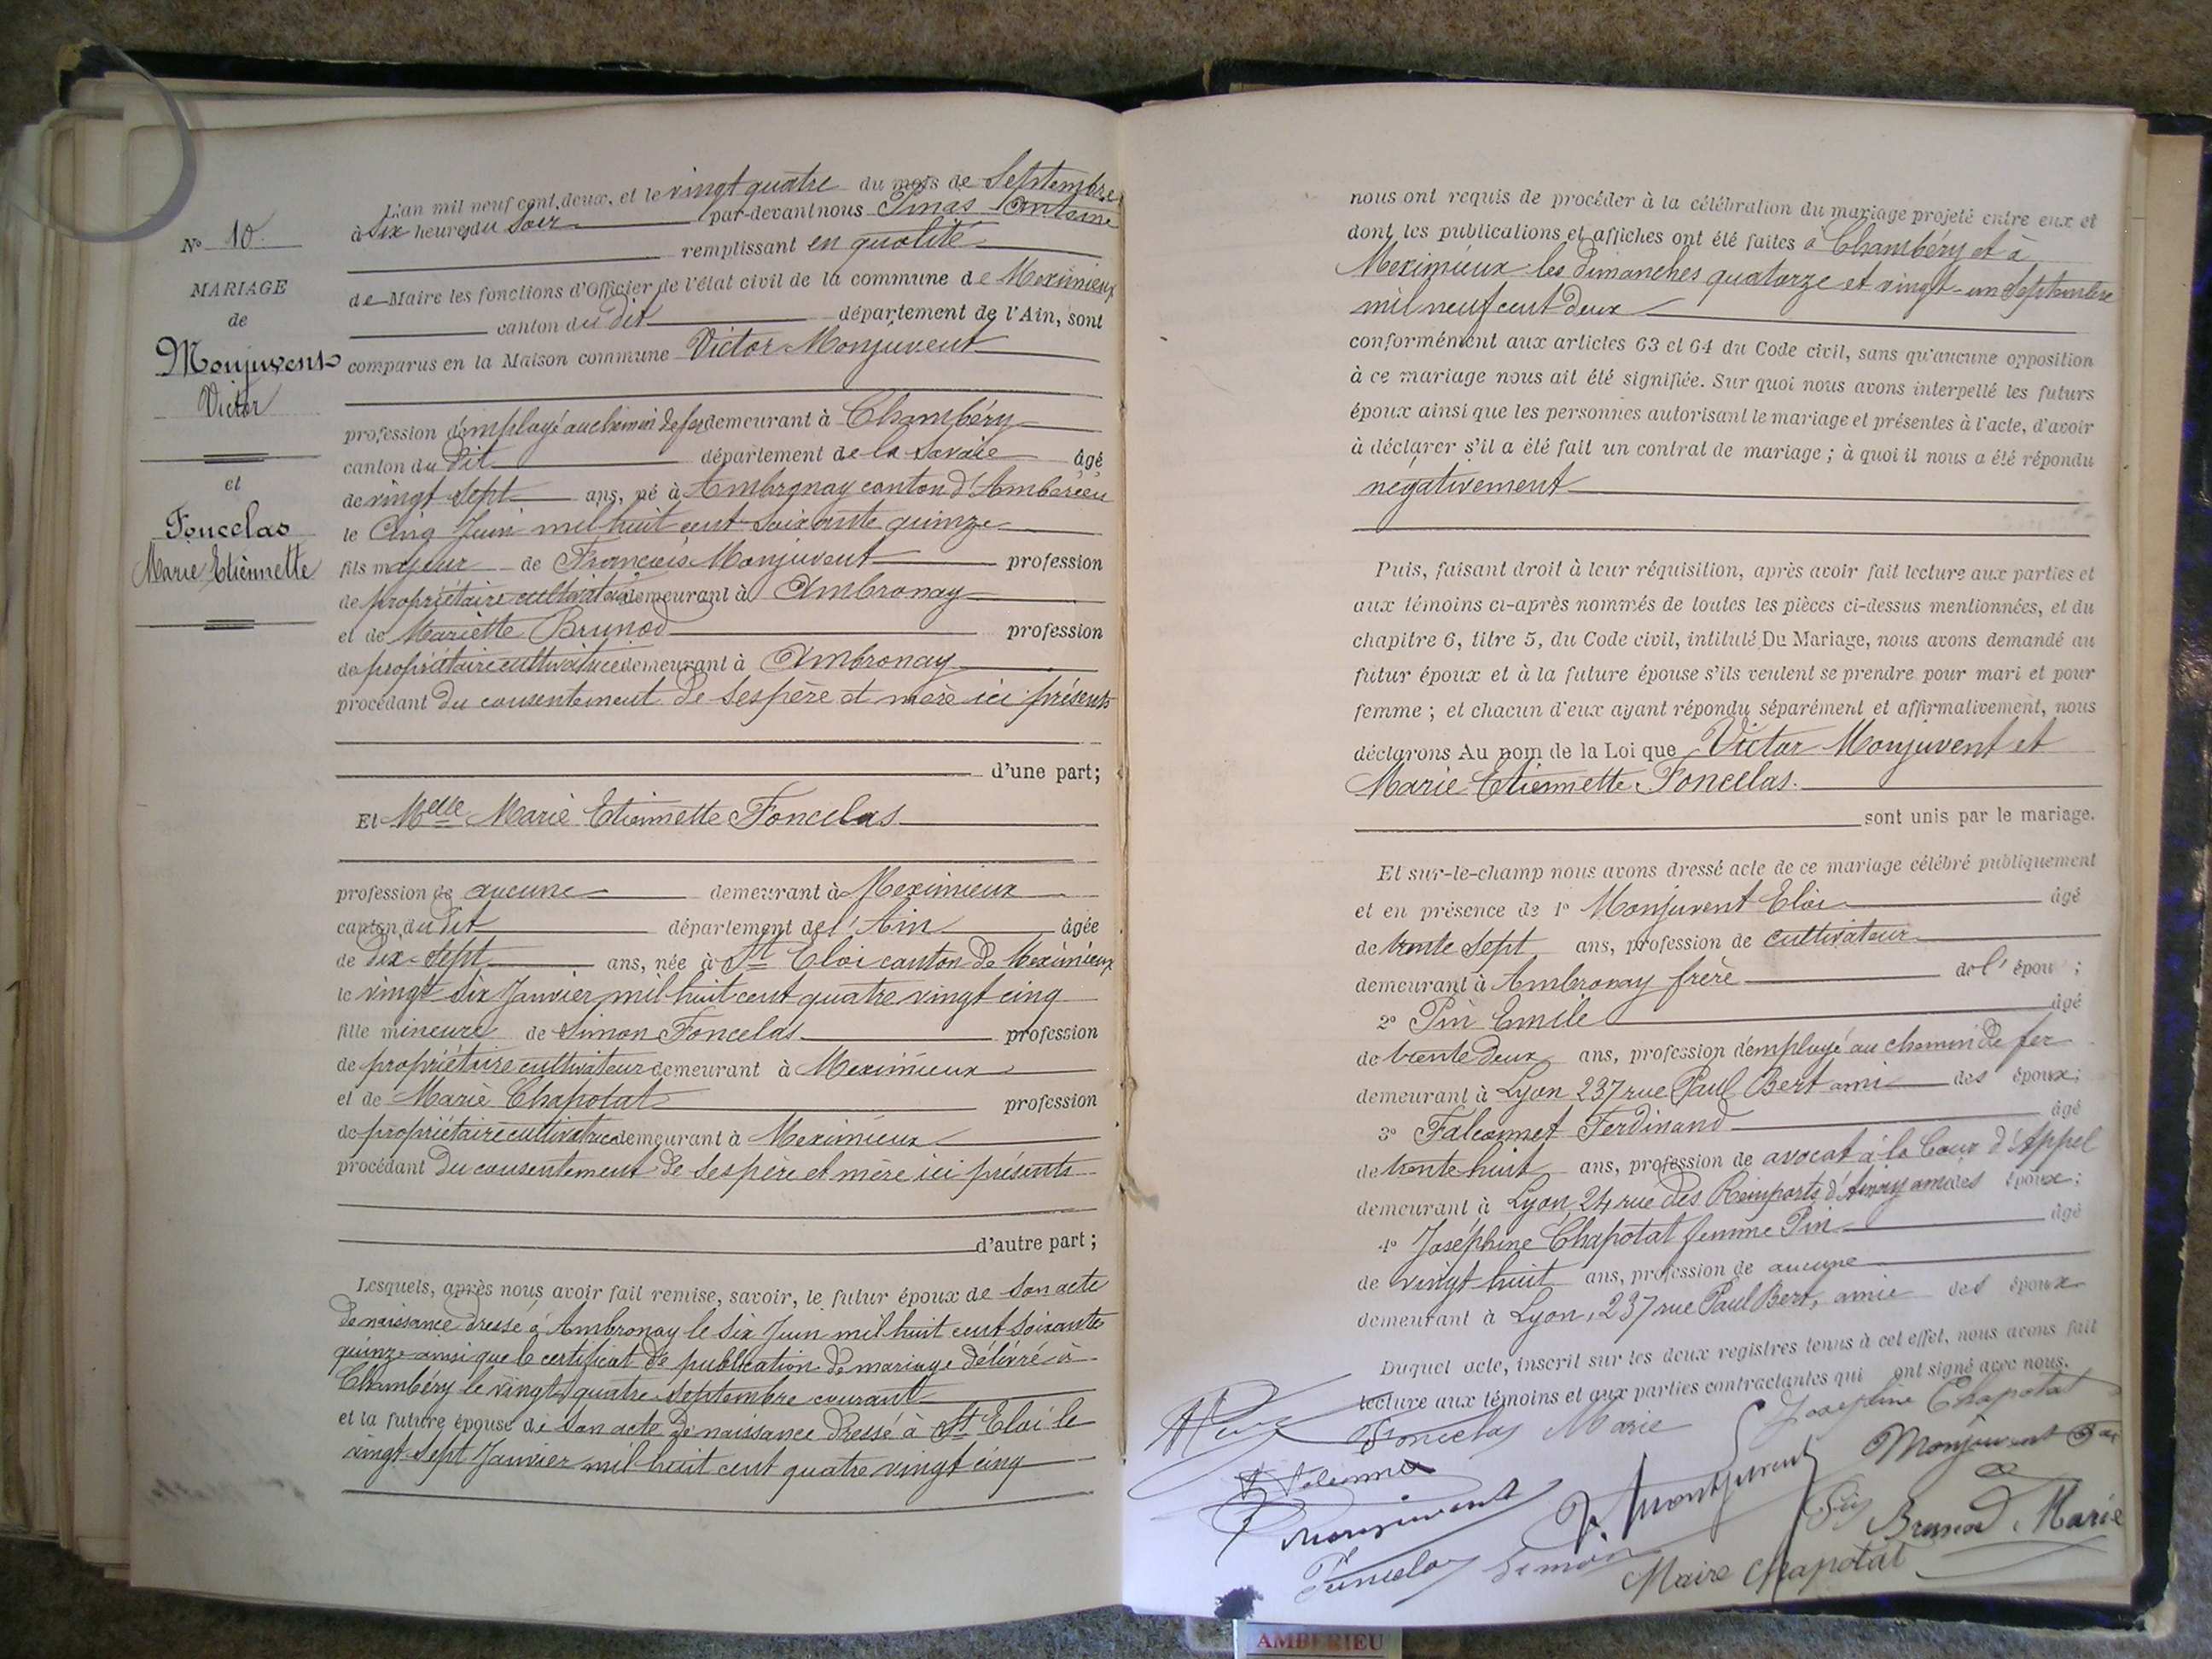 N° 10
MARIAGE
de
Monjuvent
Victor
et
Foncelas
Marie Etiennette
L'an mil neuf cent deux, et le vingt quatre du mois de Septembre
à six heures du Soir par-devant nous Pinas Antoine
remplissant en qualité
de Maire les fonctions d'Officier de l'état civil de la commune de Meximieux
canton du dit département de l'Ain, sont
comparus en la Maison commune Victor Monjuvent
profession d'employé au chemin de fer demeurant à Chambéry
canton du dit département de la Savoie âgé
de vingt sept ans, né à Ambronay canton d'Ambérieu
le Cinq Juin mil huit cent soixante quinze
fils majeur de François Monjuvent profession
de propriétaire cultivateur demeurant à Ambronay
et de Mariette Brunod profession
de propriétaire cultivatrice demeurant à Ambronay
procédant du consentement de ses père et mère ici présents
d'une part;
Et Melle Marie Etiennette Foncelas
profession de aucune demeurant à Meximieux
canton du dit département de l'Ain âgée
de dix-sept ans, née à St Eloi canton de Meximieux
le vingt six Janvier mil huit cent quatre vingt cinq
fille mineure de Simon Foncelas profession
de propriétaire cultivateur demeurant à Meximieux
et de Marie Chapotat profession
de propriétaire cultivatrice demeurant à Meximieux
procédant du consentement de ses père et mère ici présents
d'autre part;
Lesquels, après nous avoir fait remise, savoir, le futur époux de son acte
de naissance dressé à Ambronay le six Juin mil huit cent soixante
quinze ainsi que le certificat de publication de mariage délivré à
Chambéry le vingt quatre septembre courant
et la future épouse de son acte de naissance dressé à St Eloi le
vingt sept Janvier mil huit cent quatre vingt cinq
nous ont requis de procéder à la célébration du mariage projeté entre eux et
dont les publications et affiches ont été faites à Chambéry et à
Meximieux les dimanches quatorze et vingt-un septembre
mil neuf cent deux
conformément aux articles 63 et 64 du Code civil, sans qu'aucune opposition
à ce mariage nous ait été signifiée. Sur quoi nous avons interpellé les futurs
époux ainsi que les personnes autorisant le mariage et présentes à l'acte, d'avoir
à déclarer s'il a été fait un contrat de mariage; à quoi il nous a été répondu
négativement
Puis, faisant droit à leur réquisition, après avoir fait lecture aux parties et
aux témoins ci-après nommés de toutes les pièces ci-dessus mentionnées, et du
chapitre 6, titre 5, du Code civil, intitulé Du Mariage, nous avons demandé au
futur époux et à la future épouse s'ils veulent se prendre pour mari et pour
femme; et chacun d'eux ayant répondu séparément et affirmativement, nous
déclarons Au nom de la Loi que Victor Monjuvent et
Marie Etiennette Foncelas.
sont unis par le mariage.
Et sur-le-champ nous avons dressé acte de ce mariage célébré publiquement
et en présence de 1° Monjuvent Eloi âgé
de trente sept ans, profession de cultivateur
demeurant à Ambronay frère de l'épou ;
2° Pin Emile âgé
de trente deux ans, profession d'employé au chemin de fer
demeurant à Lyon 237 rue Paul Bert ami des époux;
3° Falconnet Ferdinand âgé
de trente huit ans, profession de avocat à la Cour d'Appel
demeurant à Lyon 24 rue des Remparts d'Ainay ami des époux;
4° Joséphine Chapotat femme Pin âgé
de vingt huit ans, profession de aucune
demeurant à Lyon, 237 rue Paul Bert, amie des époux
Duquel acte, inscrit sur les deux registres tenus à cet effet, nous avons fait
lecture aux témoins et aux parties contractantes qui ont signé avec nous.
Foncelas Marie Joséphine Chapotat
Monjuvent
V. Montjuvent
Monjuvent
Brunod Marie
Foncelas Simon
Marie Chapotat
AMBERIEU